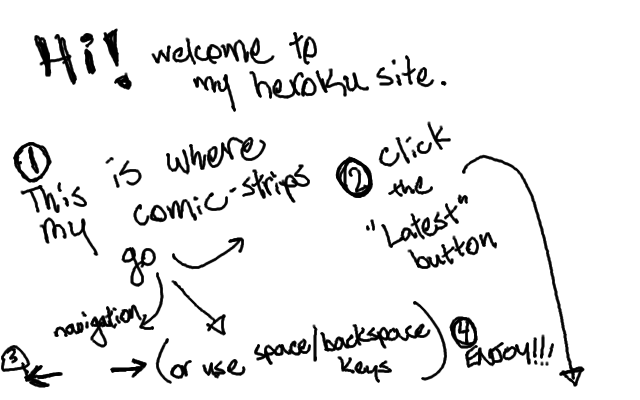 Hi! welcome to
my heroku site.
① This is where
my comic-strips
go
② click
the
"Latest"
button
navigation
③ ← → (or use space/backspace
keys)
④ ENJOY!!!